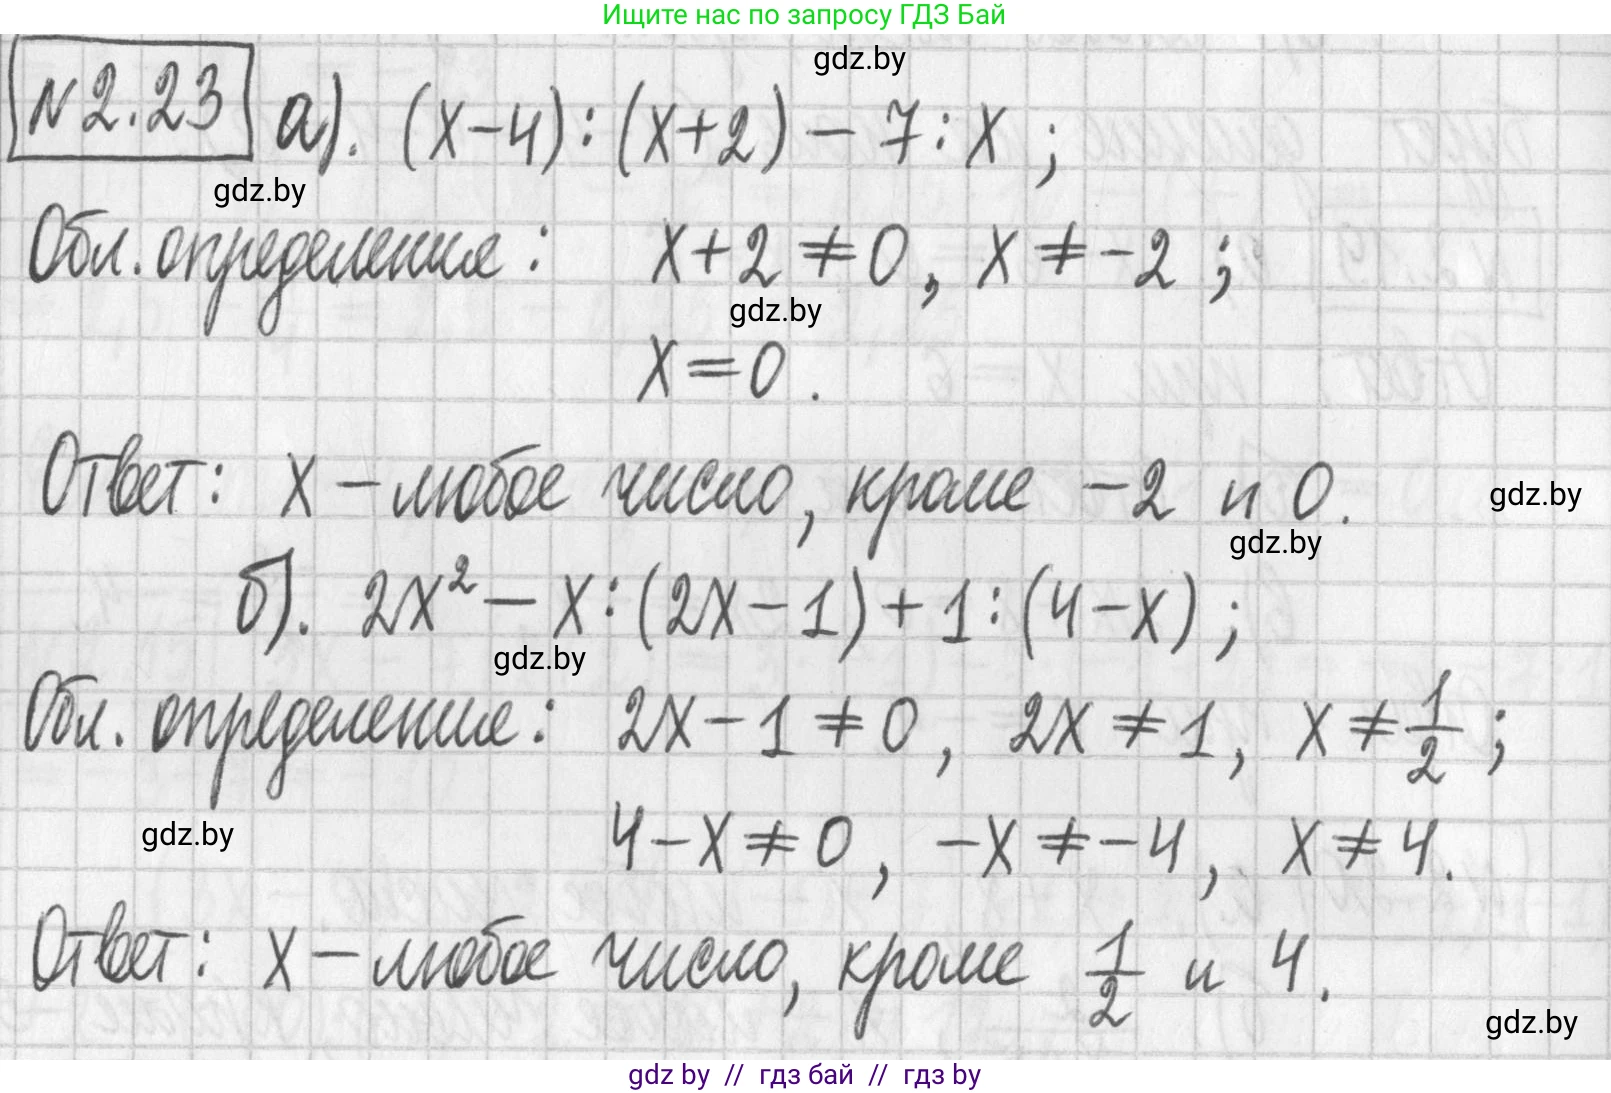 Ищите нас по запросу ГДЗ Бай
gdz.by
№2.23 а). (x-4):(x+2)-7:x;
gdz.by
Обл. определения: x+2≠0, x≠-2;
gdz.by
x=0.
Ответ: x-любое число, кроме -2 и 0.
gdz.by
gdz.by
б). 2x²-x:(2x-1)+1:(4-x);
gdz.by
Обл. определения: 2x-1≠0, 2x≠1, x≠1/2;
gdz.by
4-x≠0, -x≠-4, x≠4.
Ответ: x-любое число, кроме 1/2 и 4.
gdz.by
gdz by // гдз бай // гдз by